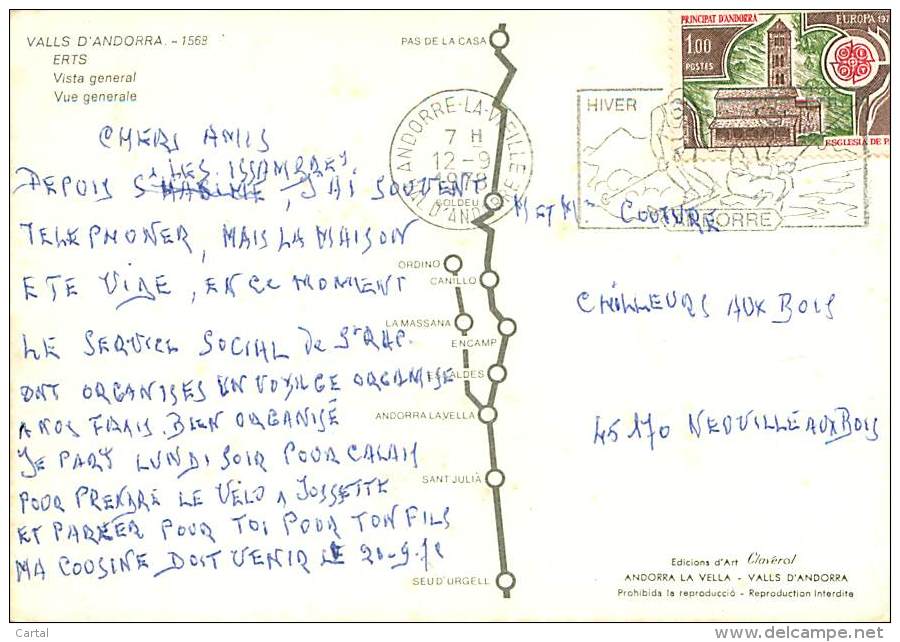 VALLS D'ANDORRA. - 1568
ERTS
Vista general
Vue generale
CHERS AMIS
LES ISSAMBRES
DEPUIS S MAXIME, J'AI SOUVENT
TELEPHONER, MAIS LA MAISON
ETE VIDE, EN CE MOMENT
LE SERVICE SOCIAL DE St RAP.
ONT ORGANISES UN VOYAGE ORGANISE
A NOS FRAIS. BIEN ORGANISÉ
JE PARS LUNDI SOIR POUR CALAIS
POUR PRENDRE LE VÉLO A JOSSETTE
ET PARLER POUR TOI POUR TON FILS
MA COUSINE DOIT VENIR LE 20-9-78
PAS DE LA CASA
SOLDEU
ORDINO
CANILLO
LA MASSANA
ENCAMP
ESCALDES
ANDORRA LA VELLA
SANT JULIÀ
SEU D'URGELL
ANDORRE-LA-VIEILLE
7 H
12-9
1978
VAL D'ANDORRE
HIVER
ANDORRE
PRINCIPAT D'ANDORRA
EUROPA 197
1,00
POSTES
ESGLESIA DE P
M ET Mme COUTURE
CHILLEURS AUX BOIS
45170 NEUVILLE AUX BOIS
Edicions d'Art Claverol
ANDORRA LA VELLA - VALLS D'ANDORRA
Prohibida la reproducció - Reproduction Interdite
Cartal
delcampe.net